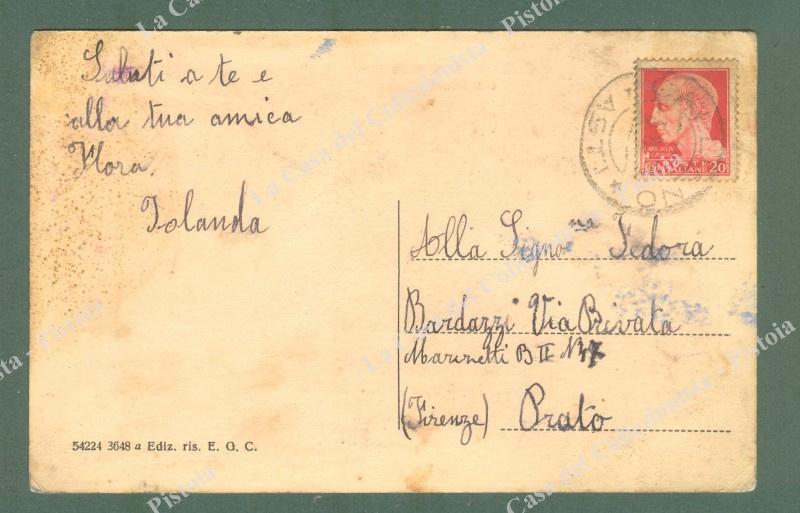 Saluti a te e
alla tua amica
Flora
Iolanda
Alla Signo.na Fedora
Bardazzi Via Privata
Marinetti B II N 47
(Firenze) Prato
54224 3648 a Ediz. ris. E. G. C.
POSTE ITALIANE 20
ASTI
La Casa del Collezionista - Pistoia